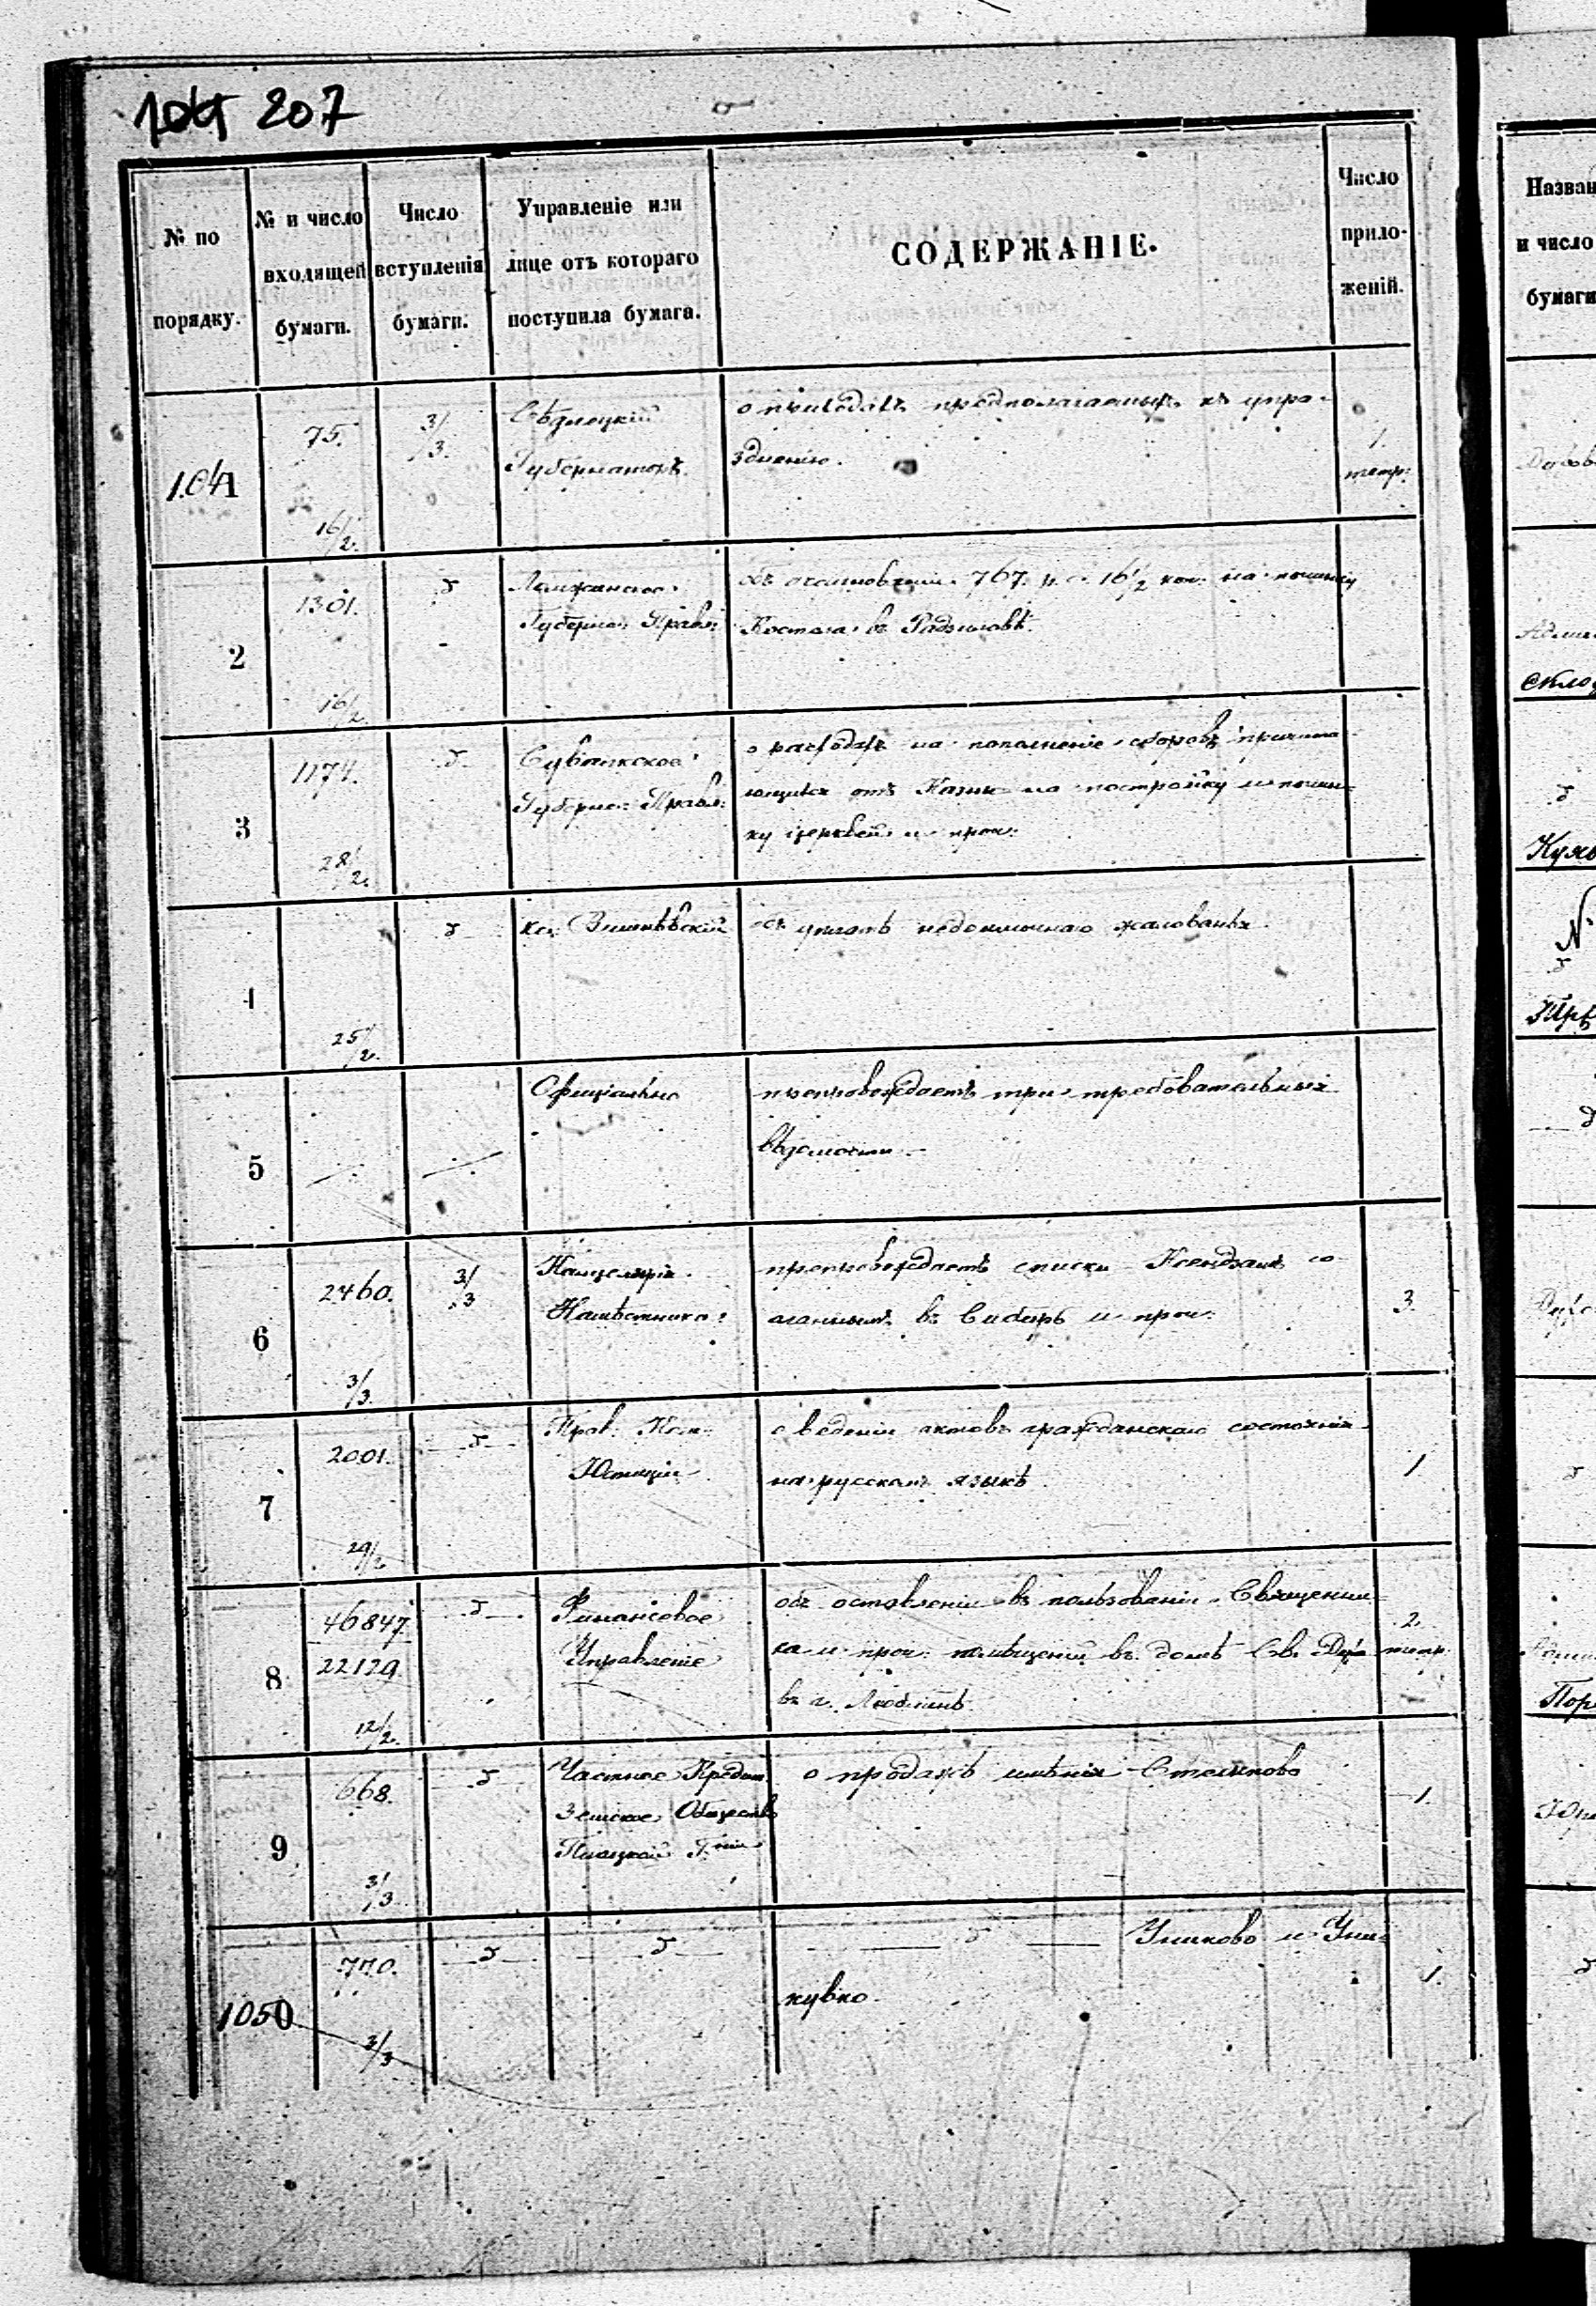 104 207
№ по порядку.
№ и число входящей бумаги.
Число вступленія бумаги.
Управленіе или лице отъ котораго поступила бумага.
СОДЕРЖАНІЕ.
Число прило-женій.
1041
75.
16/2.
3/3.
Сѣдлецкій
Губернаторъ.
о приходахъ предполагаемыхъ къ упра-
здненію.
1.
тетр.
2
1301.
16/2.
Ломжинское
Губернс: Правл:
767. р. с. 16 1/2 коп: на починку
Костела въ
3
1174.
28/2.
Сувалкское
Губернс: Правл:
о расходахъ на пополненіе сборовъ причита-
ющихся отъ Казны на постройку и почин-
ку церквей и проч:
4
25/2.
Кс:
объ уплатѣ жалованья.
5
Офиціально
препровождаетъ три требовательныхъ
вѣдомости.
6
2460.
3/3.
3/3
Канцелярія
Намѣстника:
препровождаетъ списки Ксендзамъ со-
сланнымъ въ Сибирь и проч:
3.
7
2001.
29/2
Прав: Ком:
Юстиціи
о веденіи актовъ гражданскаго состоянія
на русскомъ языкѣ.
1
8
46847.
22129
12/2.
Финансовое
Управленіе
объ оставленіи въ пользованіи Священни-
ка и проч: помѣщеній въ домѣ Св. Духа
въ г. Люблинѣ.
2.
тетр.
9
668.
3/3
Частное Кредит:
Земское Общество
Плоцкой Г-ніи
о продажѣ имѣнія
1.
1050
770.
3/3
и Уни-
1.
Назван
и число
бумаги